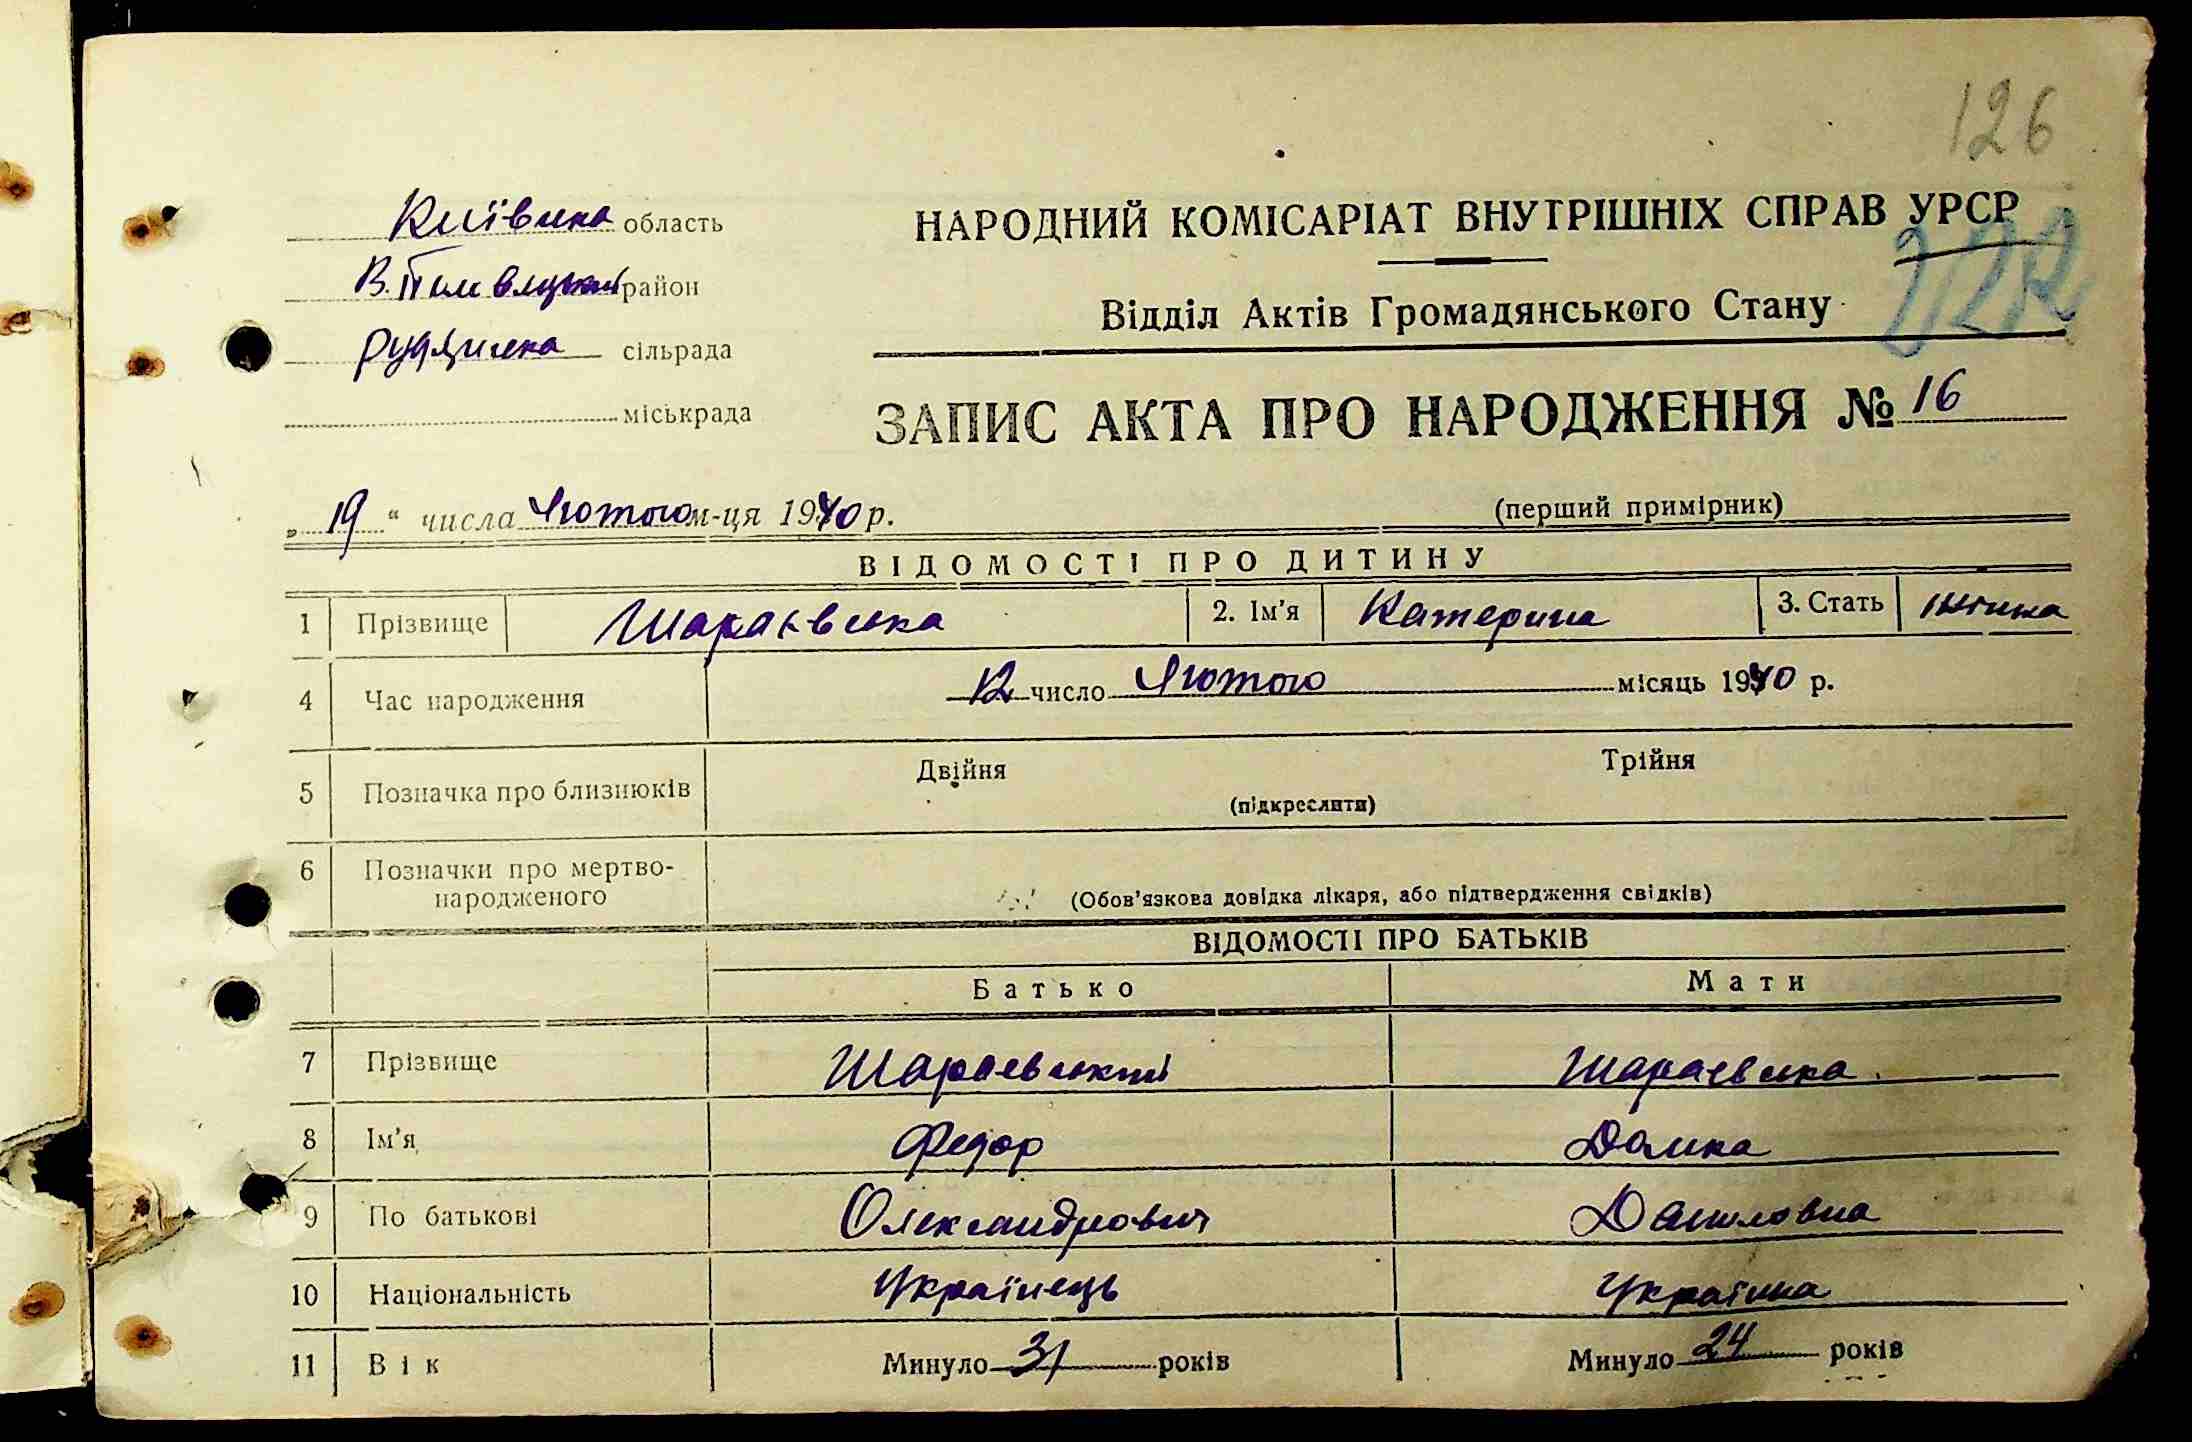 126
Київська область
НАРОДНИЙ КОМІСАРІАТ ВНУТРІШНІХ СПРАВ УРСР
222
район
Відділ Актів Громадянського Стану
сільрада
міськрада
ЗАПИС АКТА ПРО НАРОДЖЕННЯ № 16
„ 19 “ числа Лютого м-ця 1940 р.
(перший примірник)
ВІДОМОСТІ ПРО ДИТИНУ
1 Прізвище Шараєвська 2. Ім'я Катерина 3. Стать жіноча
4 Час народження 12 число Лютого місяць 1940 р.
5 Позначка про близнюків Двійня Трійня
(підкреслити)
6 Позначки про мертво-
народженого (Обов'язкова довідка лікаря, або підтвердження свідків)
ВІДОМОСТІ ПРО БАТЬКІВ
Батько Мати
7 Прізвище Шараєвський Шараєвська
8 Ім'я Федор Домка
9 По батькові Олександрович Даниловна
10 Національність Українець Українка
11 Вік Минуло 31 років Минуло 24 років